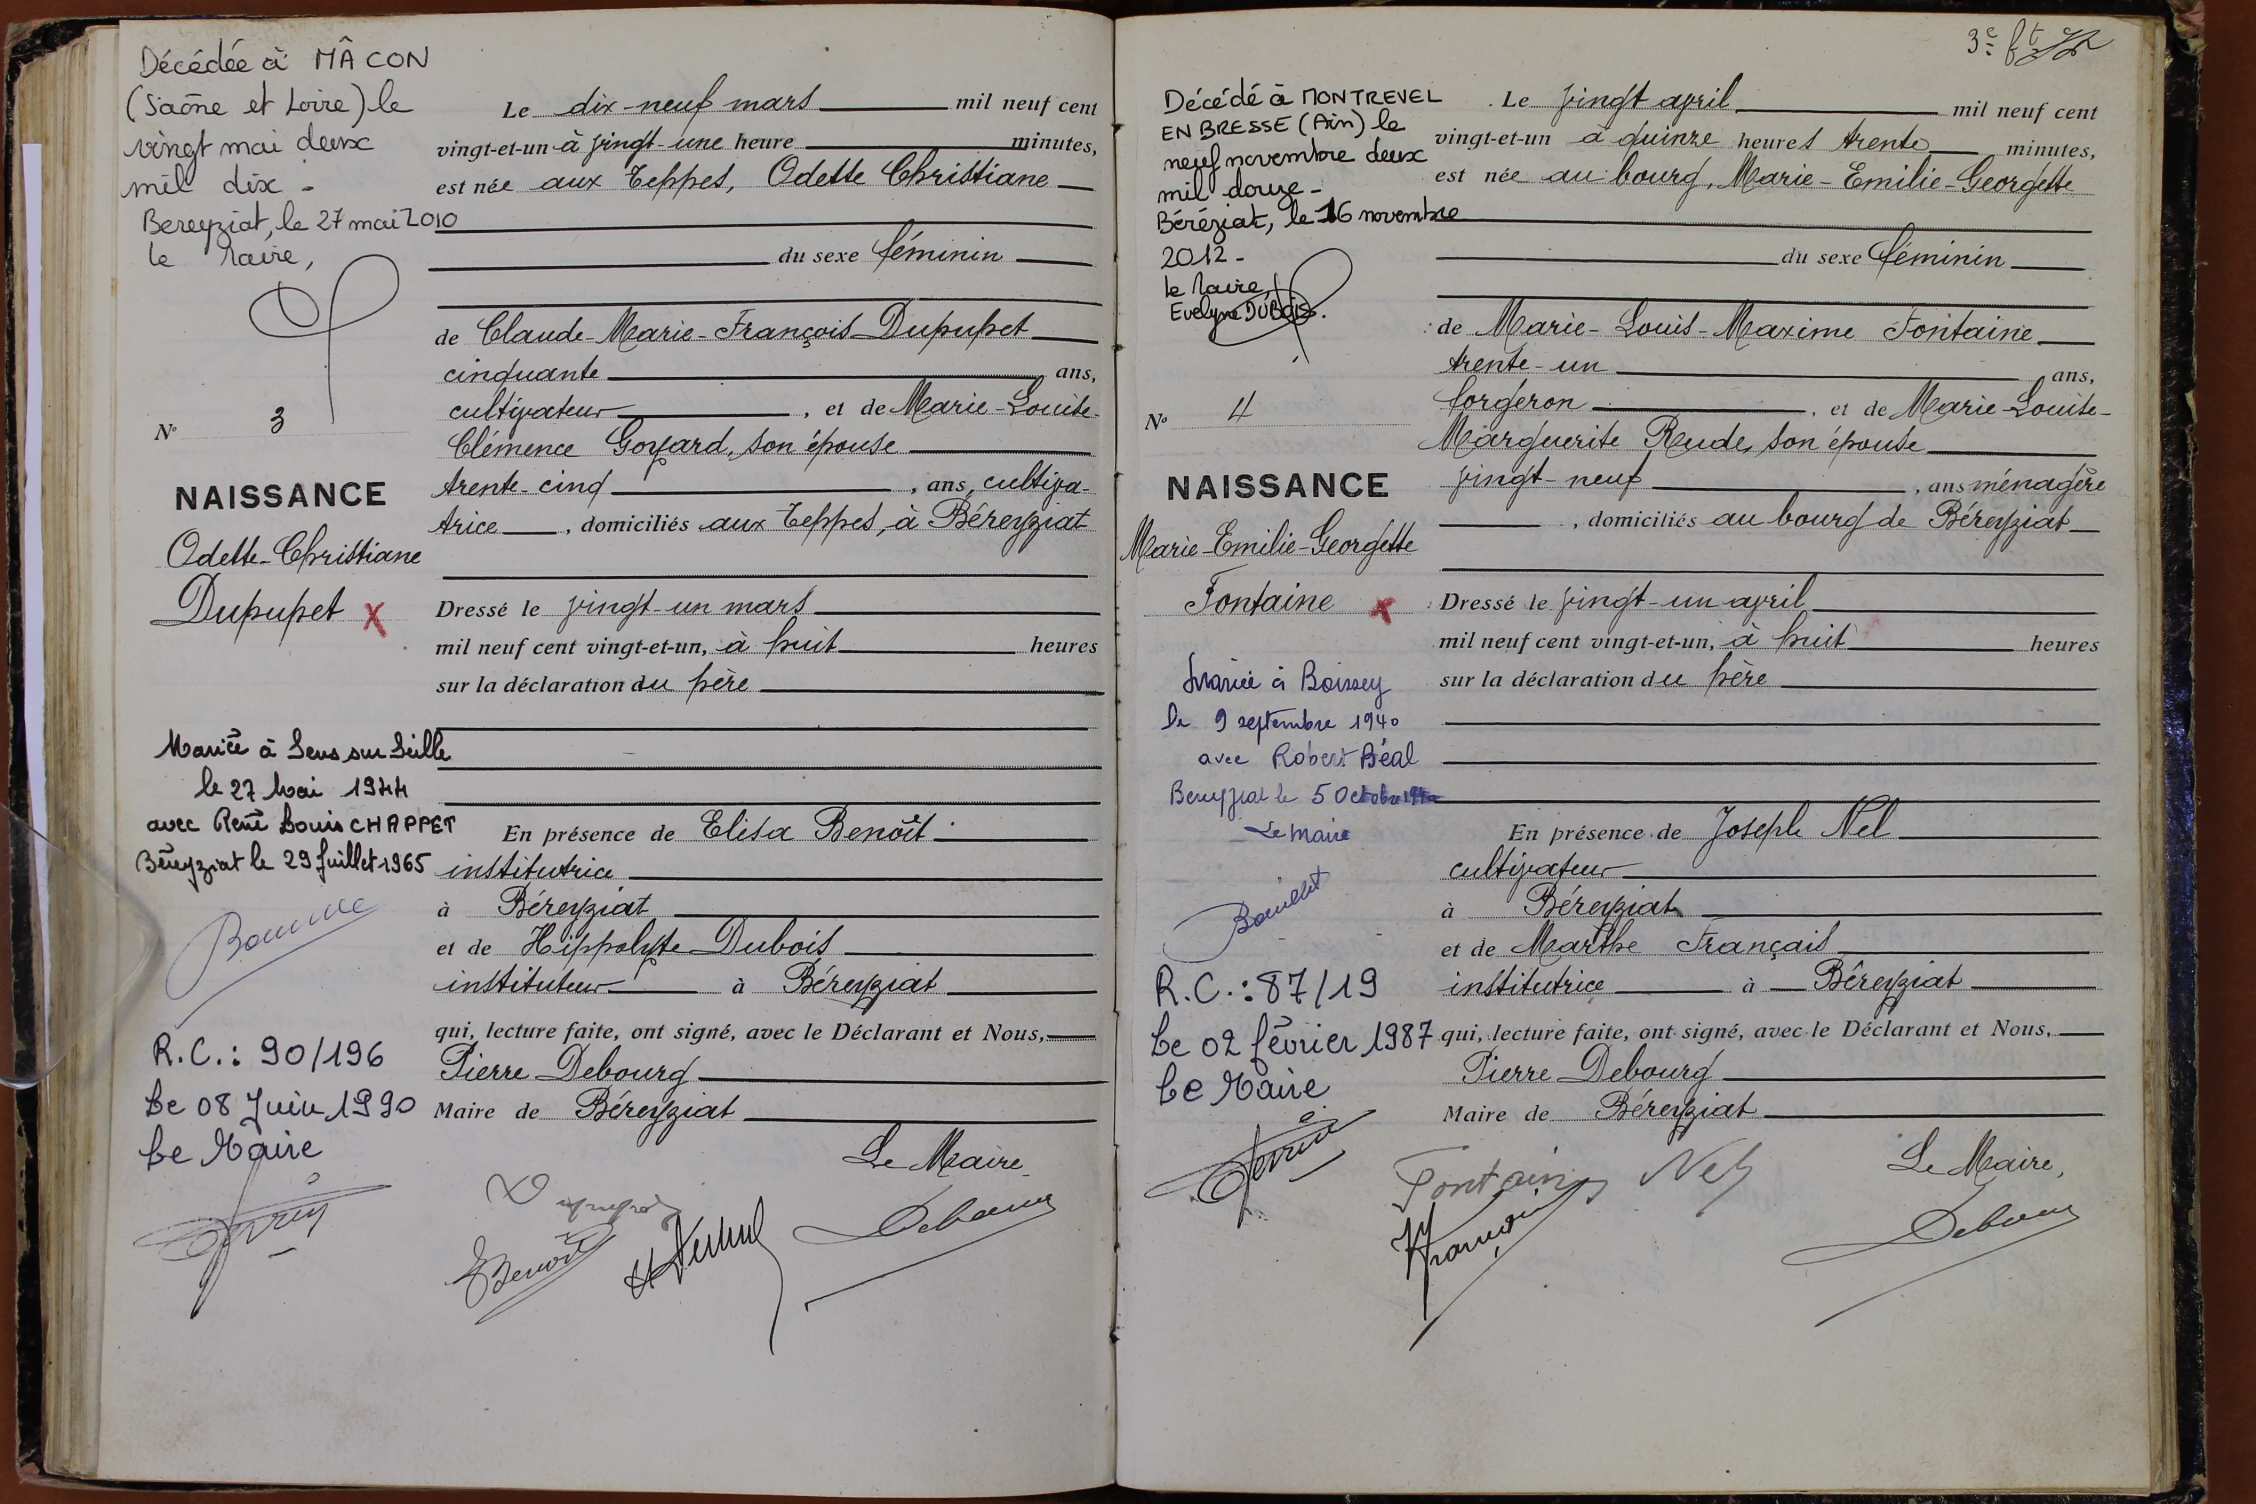 Décédée à MÂCON
(Saône et Loire) le
vingt mai deux
mil dix -
Bereyziat, le 27 mai 2010
le Maire,
N° 3
NAISSANCE
Odette-Christiane
Dupupet X
Mariée à Sens sur Seille
le 27 Mai 1944
avec René Louis CHAPPET
Béreyziat le 29 Juillet 1965
R.C.: 90/196
Le 08 Juin 1990
Le Maire
Le dix-neuf mars mil neuf cent
vingt-et-un à vingt-une heure minutes,
est née aux Teppes, Odette Christiane
du sexe féminin
de Claude-Marie-François Dupupet
cinquante ans,
cultivateur, et de Marie-Louise-
Clémence Goyard, son épouse
trente-cinq, ans, cultiva-
trice, domiciliés aux Teppes, à Béreyziat
Dressé le vingt-un mars
mil neuf cent vingt-et-un, à huit heures
sur la déclaration du père
En présence de Elisa Benoît
institutrice
à Béreyziat
et de Hippolyte Dubois
instituteur à Béreyziat
qui, lecture faite, ont signé, avec le Déclarant et Nous,
Pierre Debourg
Maire de Béreyziat
Le Maire
EBenoît
Debourg
3e ft
Décédé à MONTREVEL
EN BRESSE (Ain) le
neuf novembre deux
mil douze -
Béréziat, le 16 novembre
2012 -
le Maire,
Evelyne DUBOIS.
N° 4
NAISSANCE
Marie-Emilie-Georgette
Fontaine X
Mariée à Boissey
le 9 septembre 1940
avec Robert Béal
Bereyziat le 5 Octobre 1940
Le Maire
R.C.: 87/19
Le 02 février 1987
Le Maire
Le vingt avril mil neuf cent
vingt-et-un à quinze heures trente minutes,
est née au bourg, Marie-Emilie-Georgette
du sexe féminin
de Marie-Louis-Maxime Fontaine
trente-un ans,
forgeron, et de Marie-Louise-
Marguerite Rude, son épouse
vingt-neuf, ans ménagère
, domiciliés au bourg de Béreyziat
Dressé le vingt-un avril
mil neuf cent vingt-et-un, à huit heures
sur la déclaration du père
En présence de Joseph Nel
cultivateur
à Béreyziat
et de Marthe Français
institutrice à Béreyziat
qui, lecture faite, ont signé, avec le Déclarant et Nous,
Pierre Debourg
Maire de Béreyziat
Le Maire,
Fontaine Nel
Debourg